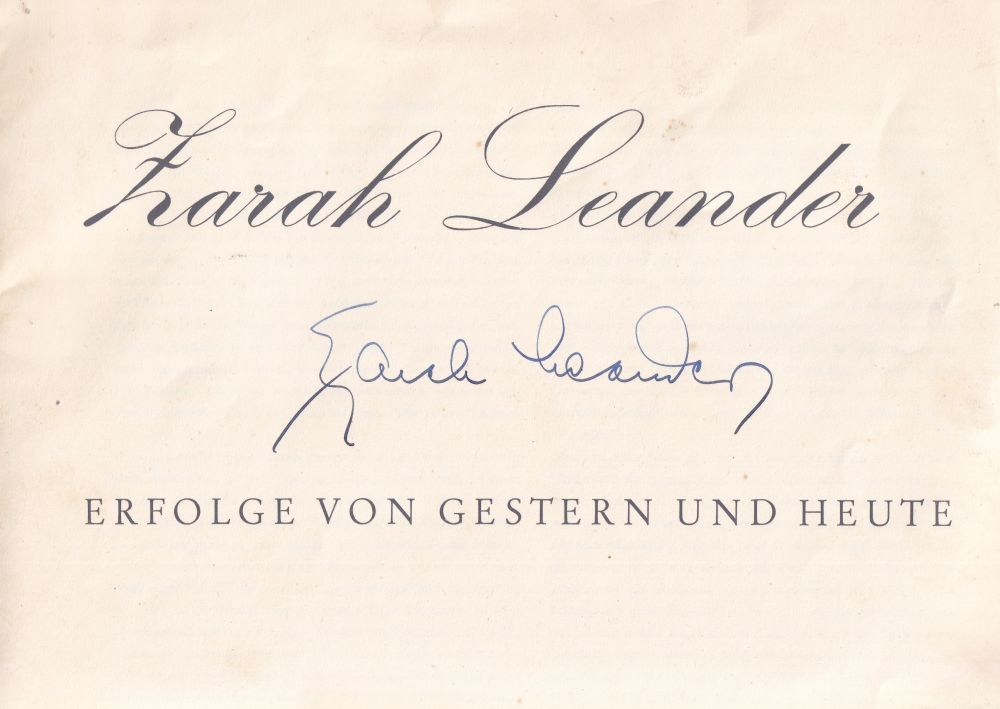 Zarah Leander
Zarah Leander
ERFOLGE VON GESTERN UND HEUTE